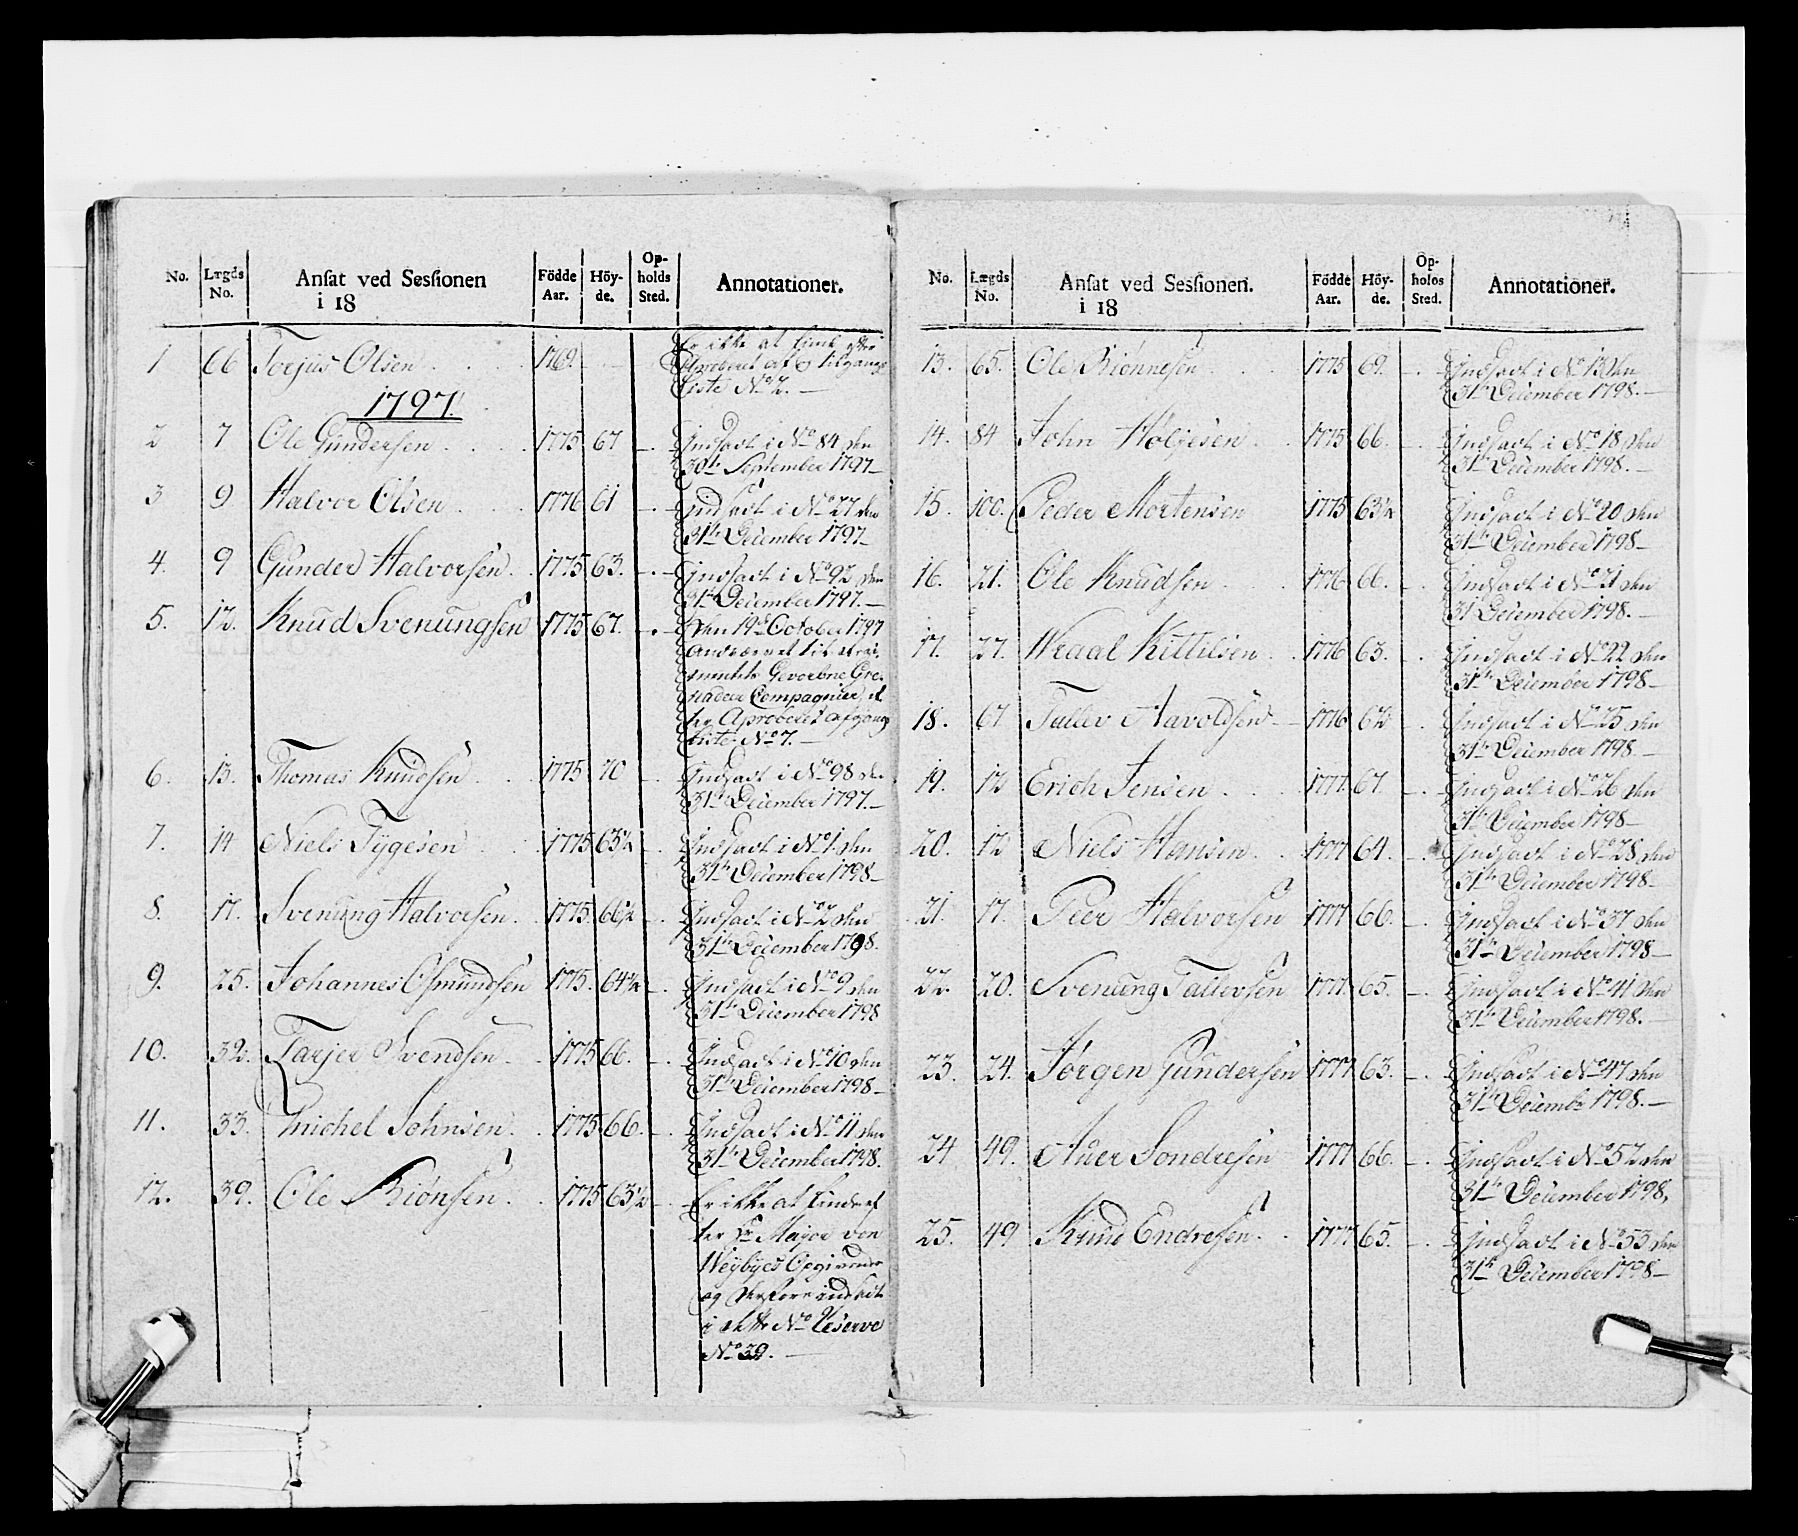 No. Lægds No. Ansat ved Sessionen i 18 Födde Aar. Höyde. Opholds Sted. Annotationer.
1 66 Torjus Olsen 1769. Er ikke at finde efter
Aproberet afgangs
Liste No 2. —
1797.
2 7 Ole Gundersen 1775 67 Indsadt i No 84 den
30te September 1797 —
3 9 Halvor Olsen 1776 61 indsadt i No 27 den
31te December 1797 —
4. 9 Gunder Halvorsen 1775 63. Indsadt i No 92 den
31te December 1797. —
5. 12. Knud Svenungsen 1775 67. Den 19de October 1797
til Regi-
mentets Gevorbne Gre-
nadeer Compagnier ef-
ter Aproberet afgangs
Liste No 7. —
6. 13. Thomas Knudsen 1775 70 Indsadt i No 98 den
31te December 1797. —
7. 14 Niels Tygesen 1775 63½ Indsadt i No 1. den
31te December 1798 —
8. 17. Svenung Halvorsen 1775. 66½ Indsadt i No 2 den
31te December 1798.
9. 25. Johannes Osmundsen 1775. 64¾ Indsadt i No 9 den
31te December 1798
10. 32. Tarjer Svendsen 1775 66. Indsadt i No 10 den
31te December 1798 —
11. 33. Michel Johnsen 1775 66. Indsadt i No 11 den
31te December 1798.
12. 39. Ole Biönsen 1775 63½ Er ikke at finde ef-
ter Hr Major von
Weybyes Opgivende
og derfore indsadt
i dette No Reserve
No 39. —
No. Lægds No. Ansat ved Sessionen. i 18 Födde Aar. Höyde. Opholds Sted. Annotationer.
13. 65. Ole Biönnesen 1775 69. Indsadt i No 13 den
31te December 1798. —
14. 84 John Holjesen 1775 66. Indsadt i No 18 den
31te December 1798. —
15. 100. Peder Mortensen 1775 63¼ Indsadt i No 20 den
31te December 1798 —
16. 21. Ole Knudsen 1776 66. Indsadt i No 21 den
31 December 1798. —
17. 27. Wraal Kittilsen 1776 63. Indsadt i No 22 den
31te December 1798 —
18. 67 Tallev Aavoldsen 1776 62 Indsadt i No 25 den
31te December 1798 —
19. 12 Erich Jensen 1777. 67. Indsadt i No 26 den
31te December 1798 —
20. 12 Niels Hansen 1777 64. Indsadt i No 28 den
31te December 1798 —
21. 17. Peer Halvorsen 1777 66. Indsadt i No 37 den
31te December 1798 —
22. 20. Svenung Tallevsen 1777. 65. Indsadt i No 41 den
31te December 1798. —
23. 24. Jörgen Gundersen 1777 63. Indsadt i No 47 den
31te December 1798. —
24 49. Auer Sondresen 1777 66. Indsadt i No 52 den
31te December 1798,
25. 49 Knud Endresen 1777 65. Indsadt i No 53 den
31te December 1798 —